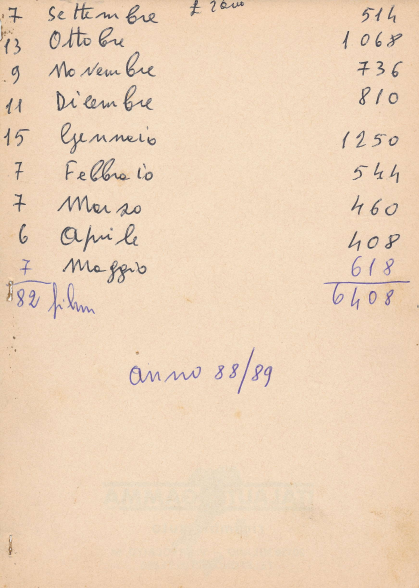 7 Settembre 514
13 Ottobre 1068
9 Novembre 736
11 Dicembre 810
15 Gennaio 1250
7 Febbraio 544
7 Marzo 460
6 Aprile 408
7 Maggio 618
82 film 6408
anno 88/89